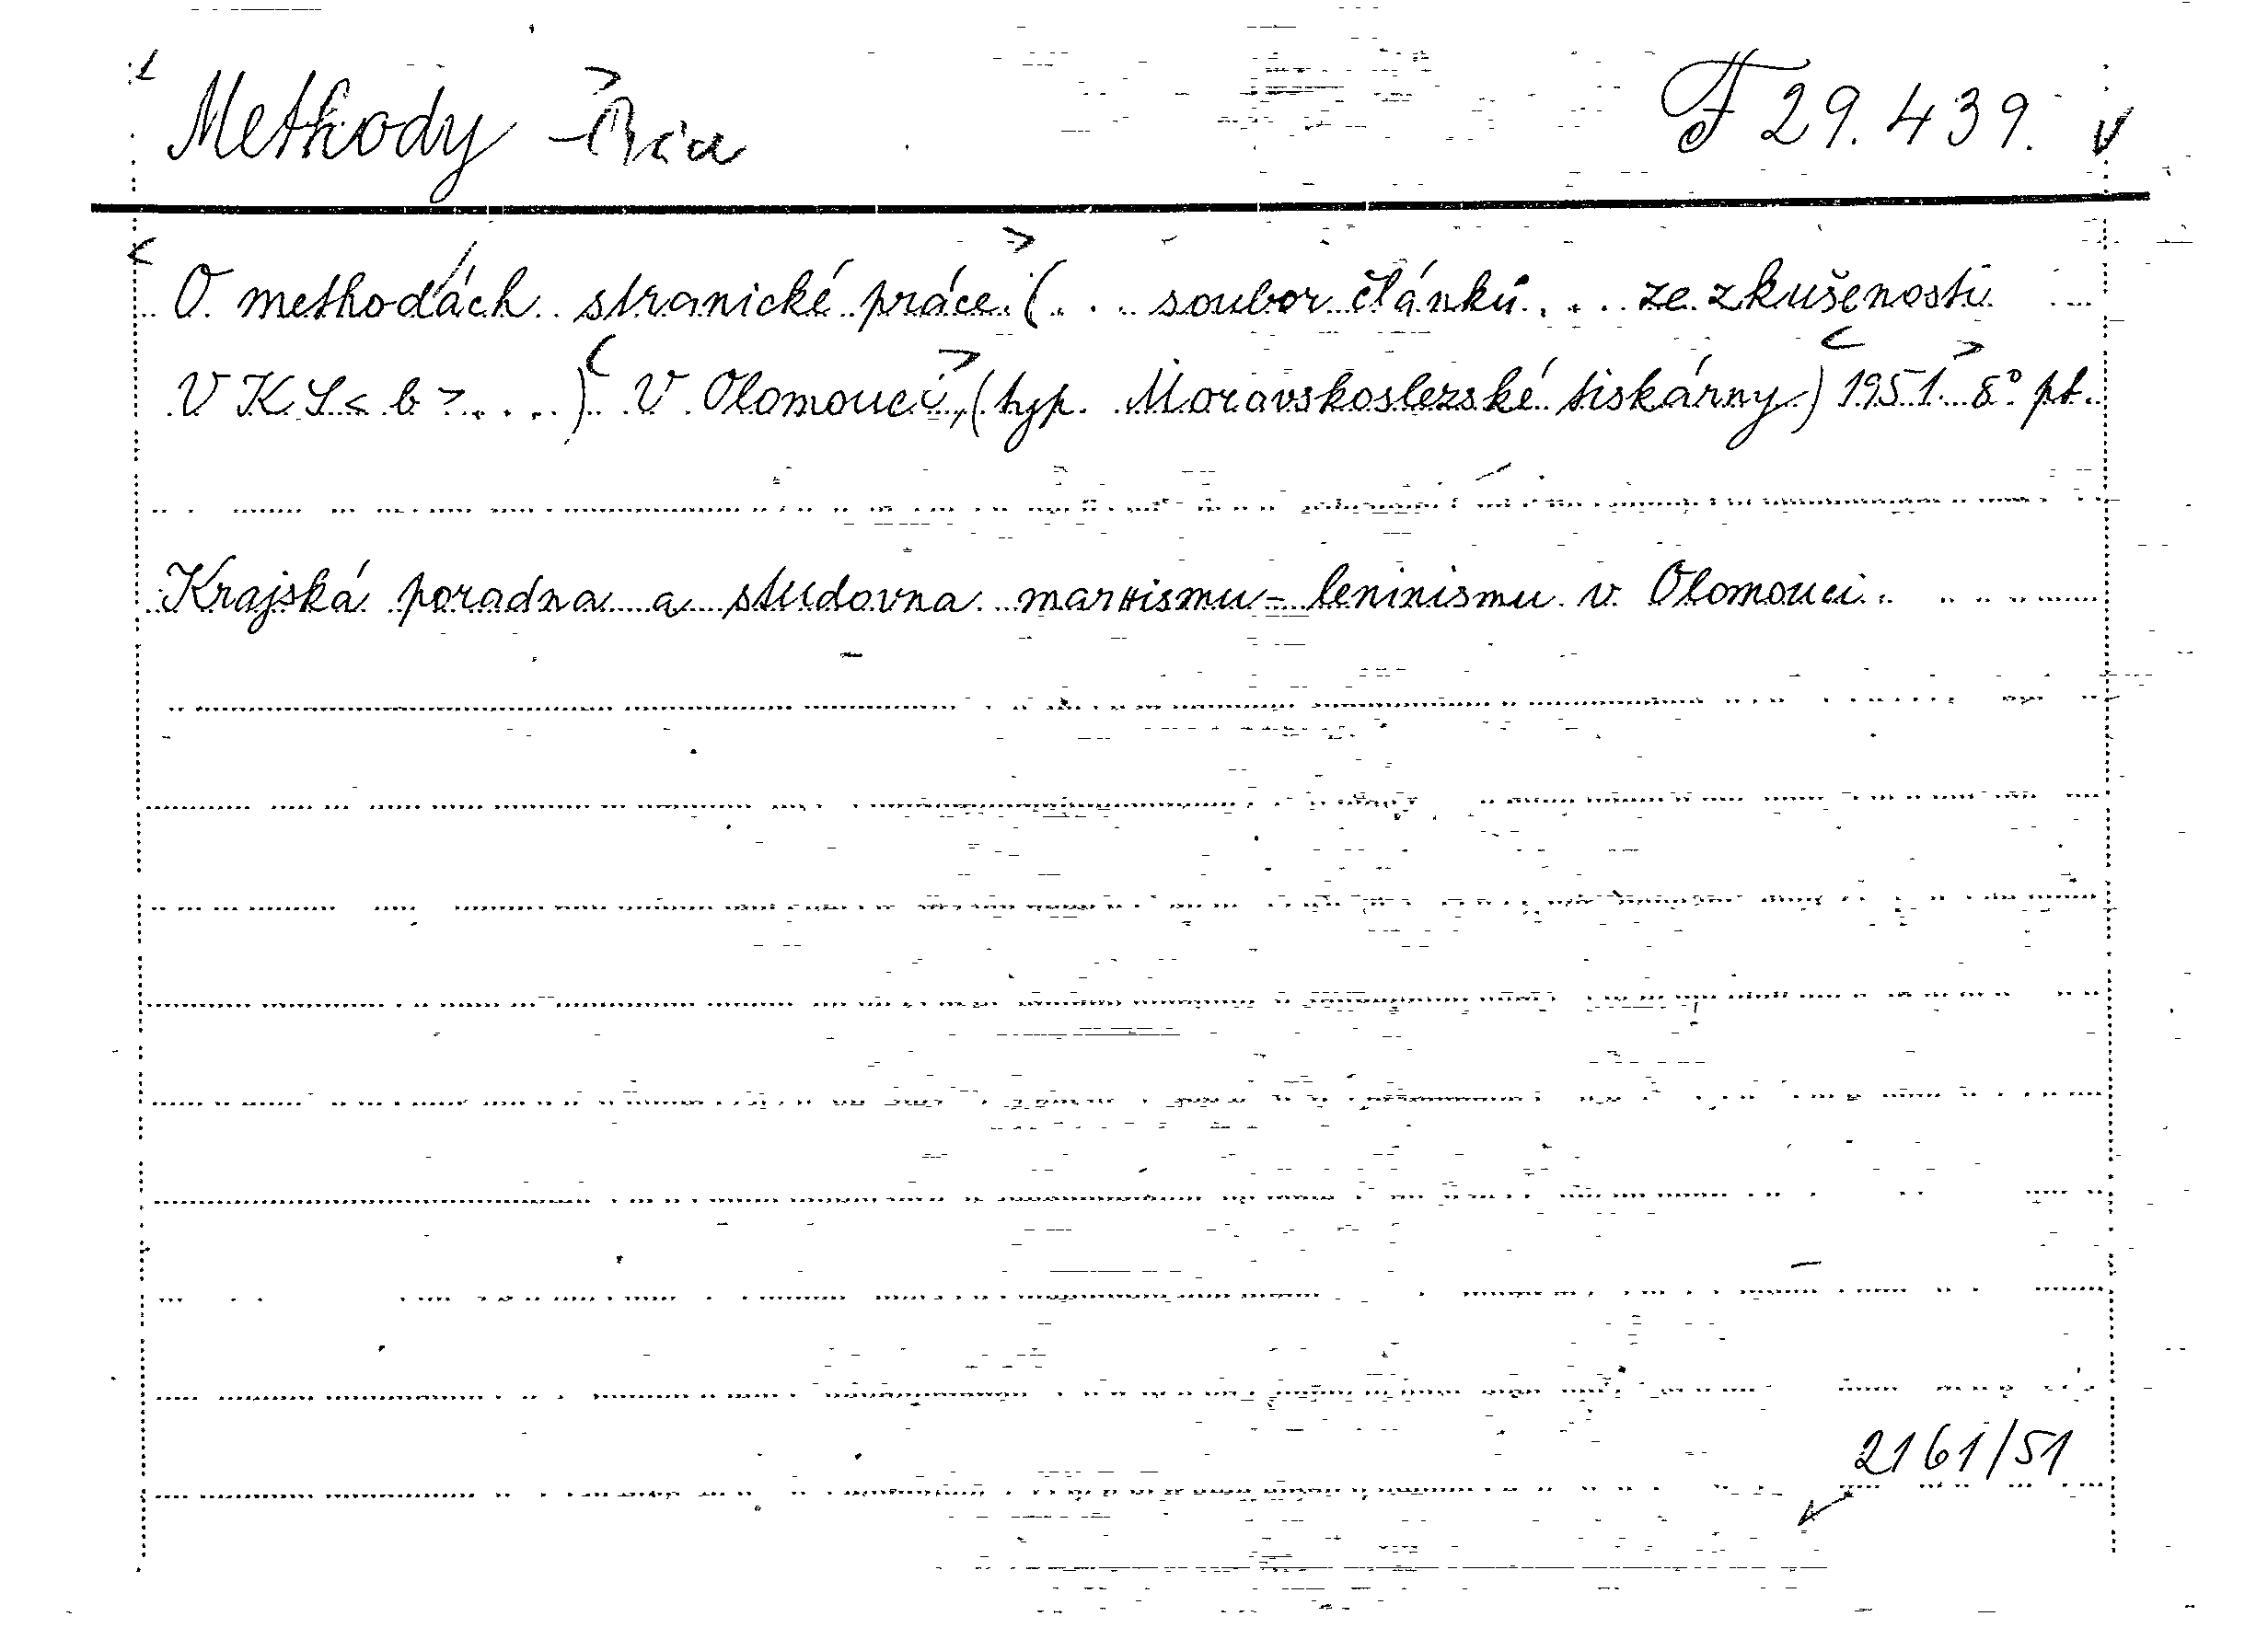 Methody Práce F 29.439.
O methodách stranické práce (... soubor článků ... ze zkušenosti
VKS<b>....) V Olomouci, (typ. Moravskoslezské tiskárny) 1951. 8° pt.
Krajská poradna a studovna marxismu-leninismu v Olomouci.
2161/51